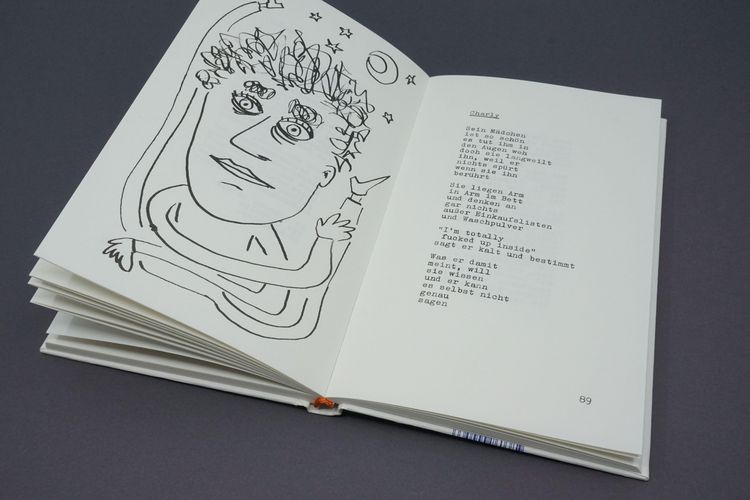 Charly
Sein Mädchen
ist so schön
es tut ihm in
den Augen weh
doch sie langweilt
ihn, weil er
nichts spürt
wenn sie ihn
berührt
Sie liegen Arm
in Arm im Bett
und denken an
gar nichts
außer Einkaufslisten
und Waschpulver
"I'm totally
fucked up inside"
sagt er kalt und bestimmt
Was er damit
meint, will
sie wissen
und er kann
es selbst nicht
genau
sagen
89